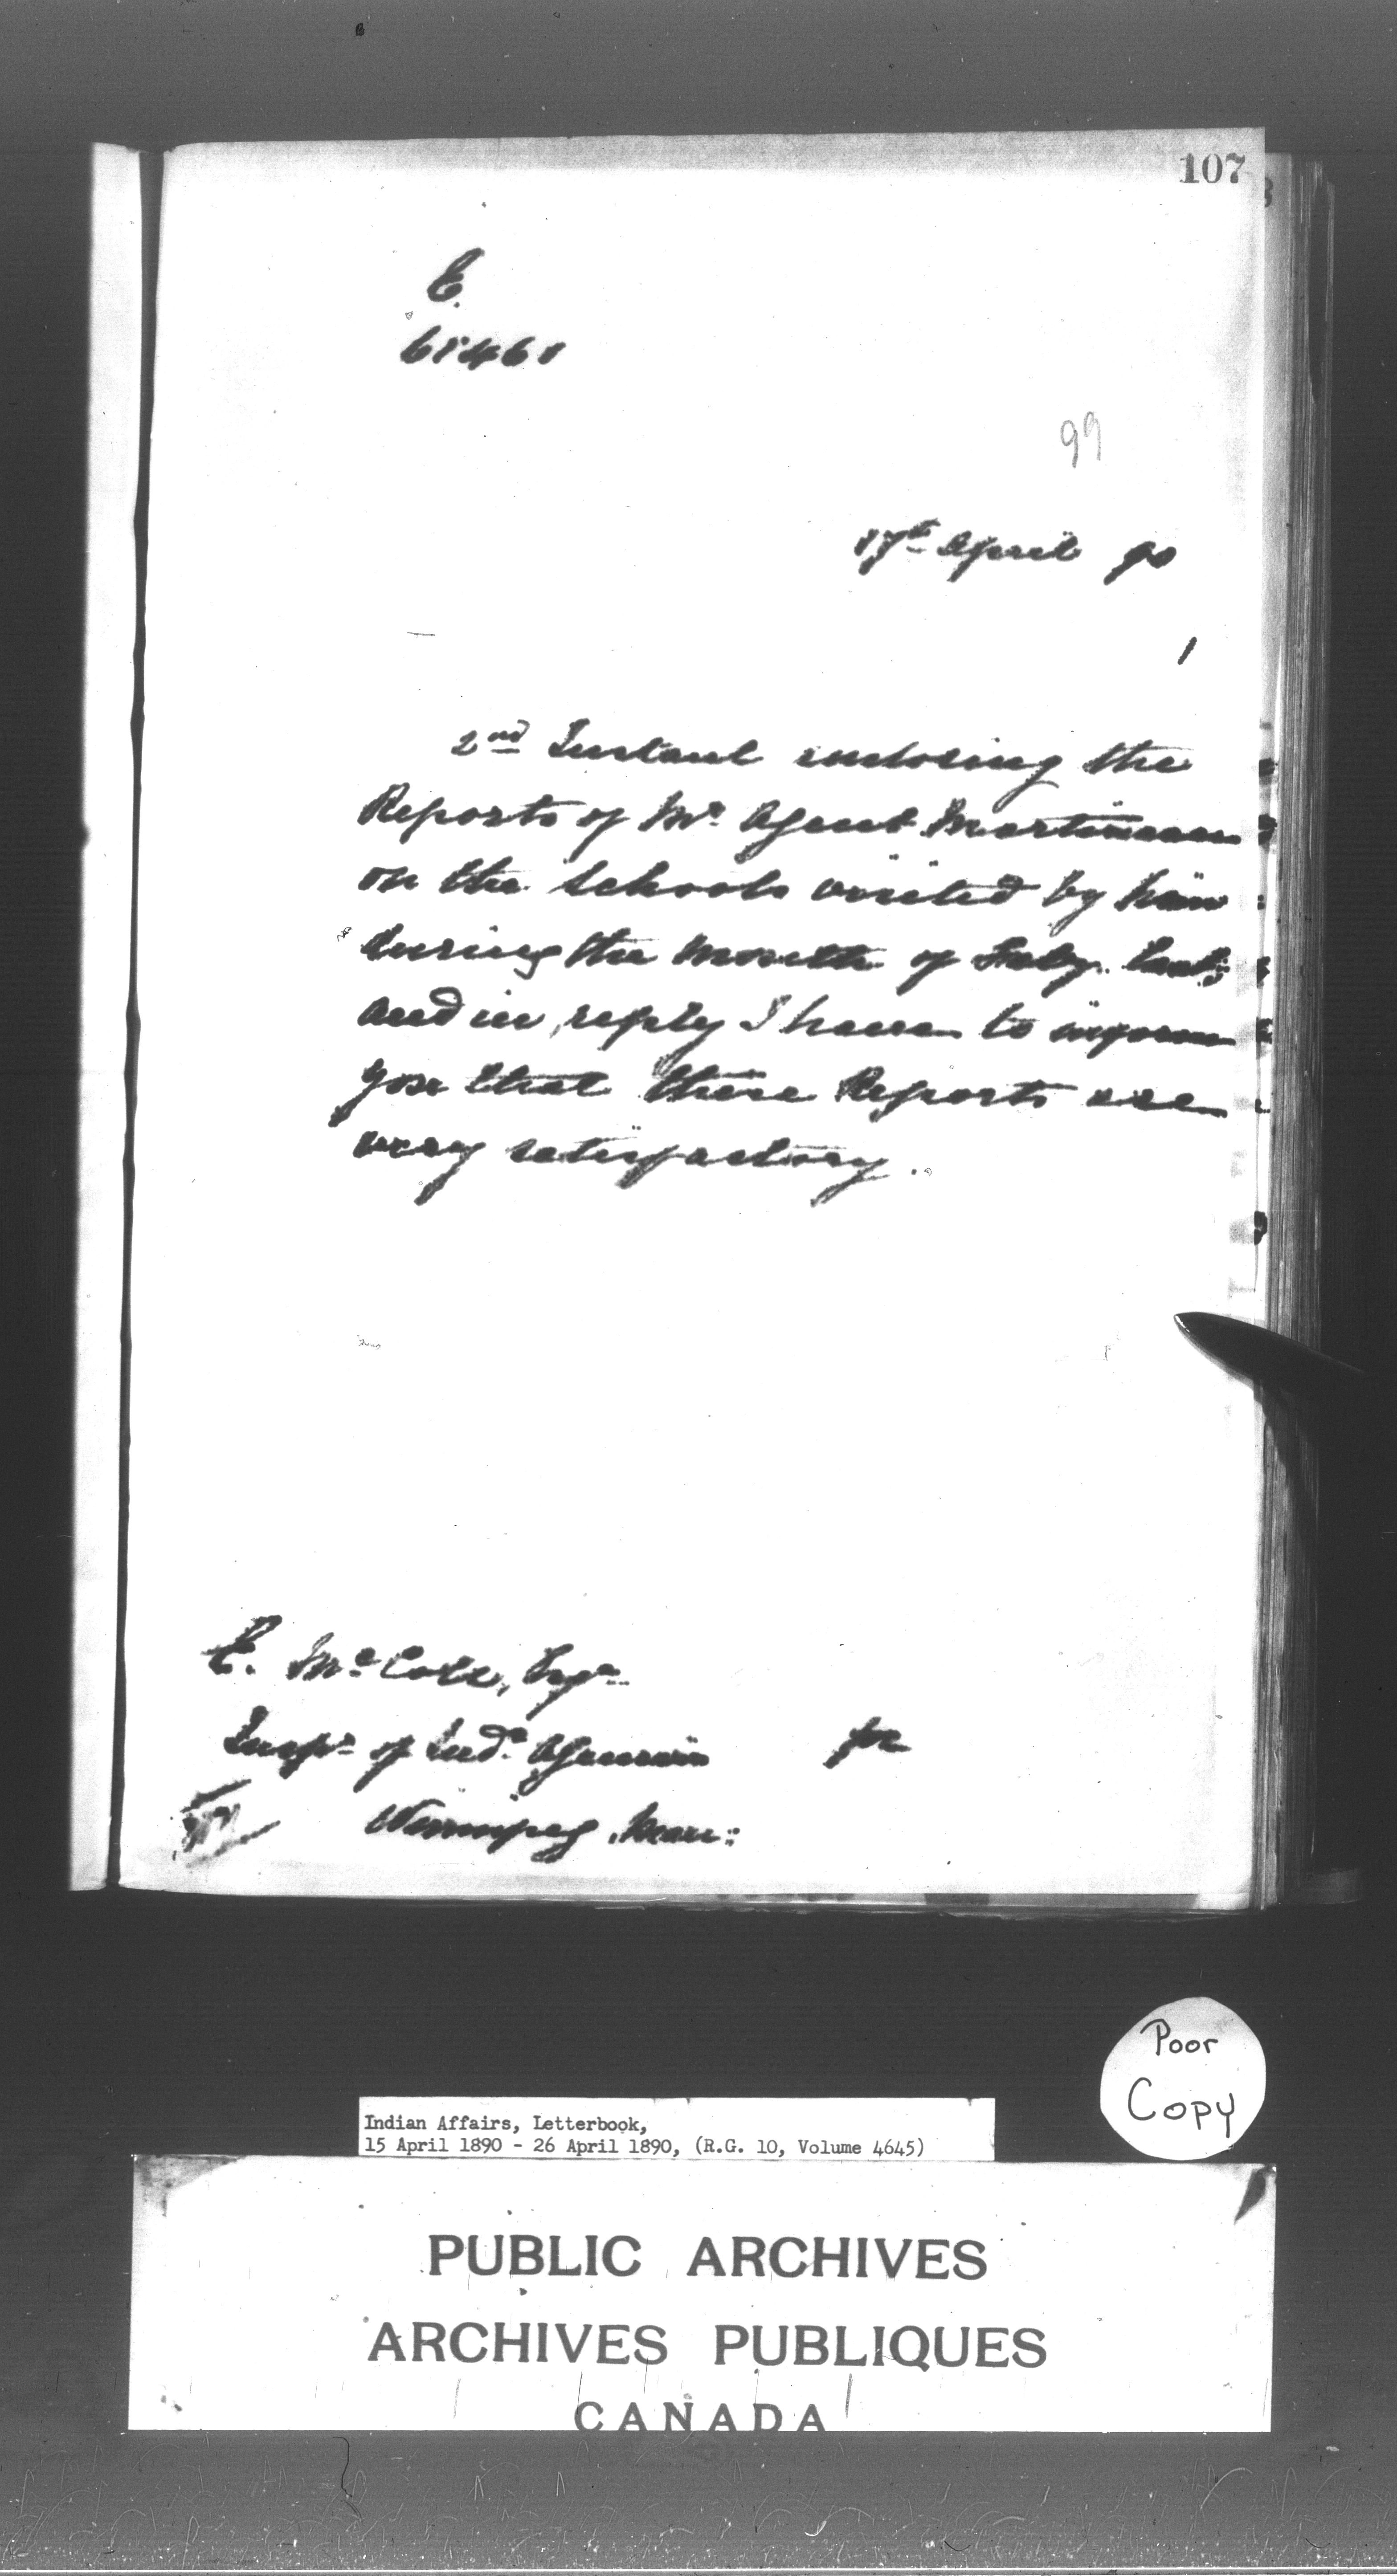 107
E.
61461
99
17th April 90
1
2nd Instant enclosing the
Reports of Mr. Agent Martineau
on the Schools visited by him
during the Month of Feby. last;
and in reply I have to inform
you that these Reports are
very satisfactory.
E. McColl, Esqr.
Inspr. of Indn. Agencies
for
Winnipeg, Man:
Poor
Copy
Indian Affairs, Letterbook,
15 April 1890 - 26 April 1890, (R.G. 10, Volume 4645)
PUBLIC ARCHIVES
ARCHIVES PUBLIQUES
CANADA